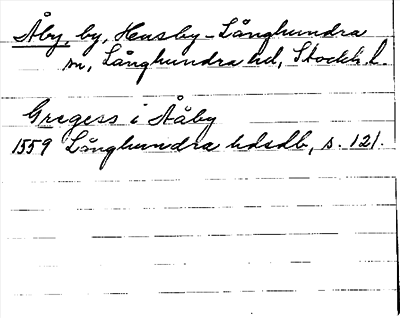 Åby, by, Husby-Långhundra
sn, Långhundra hd, Stockh. l.
Gregers i Ååby
1559 Långhundra hdsdb, s. 121.